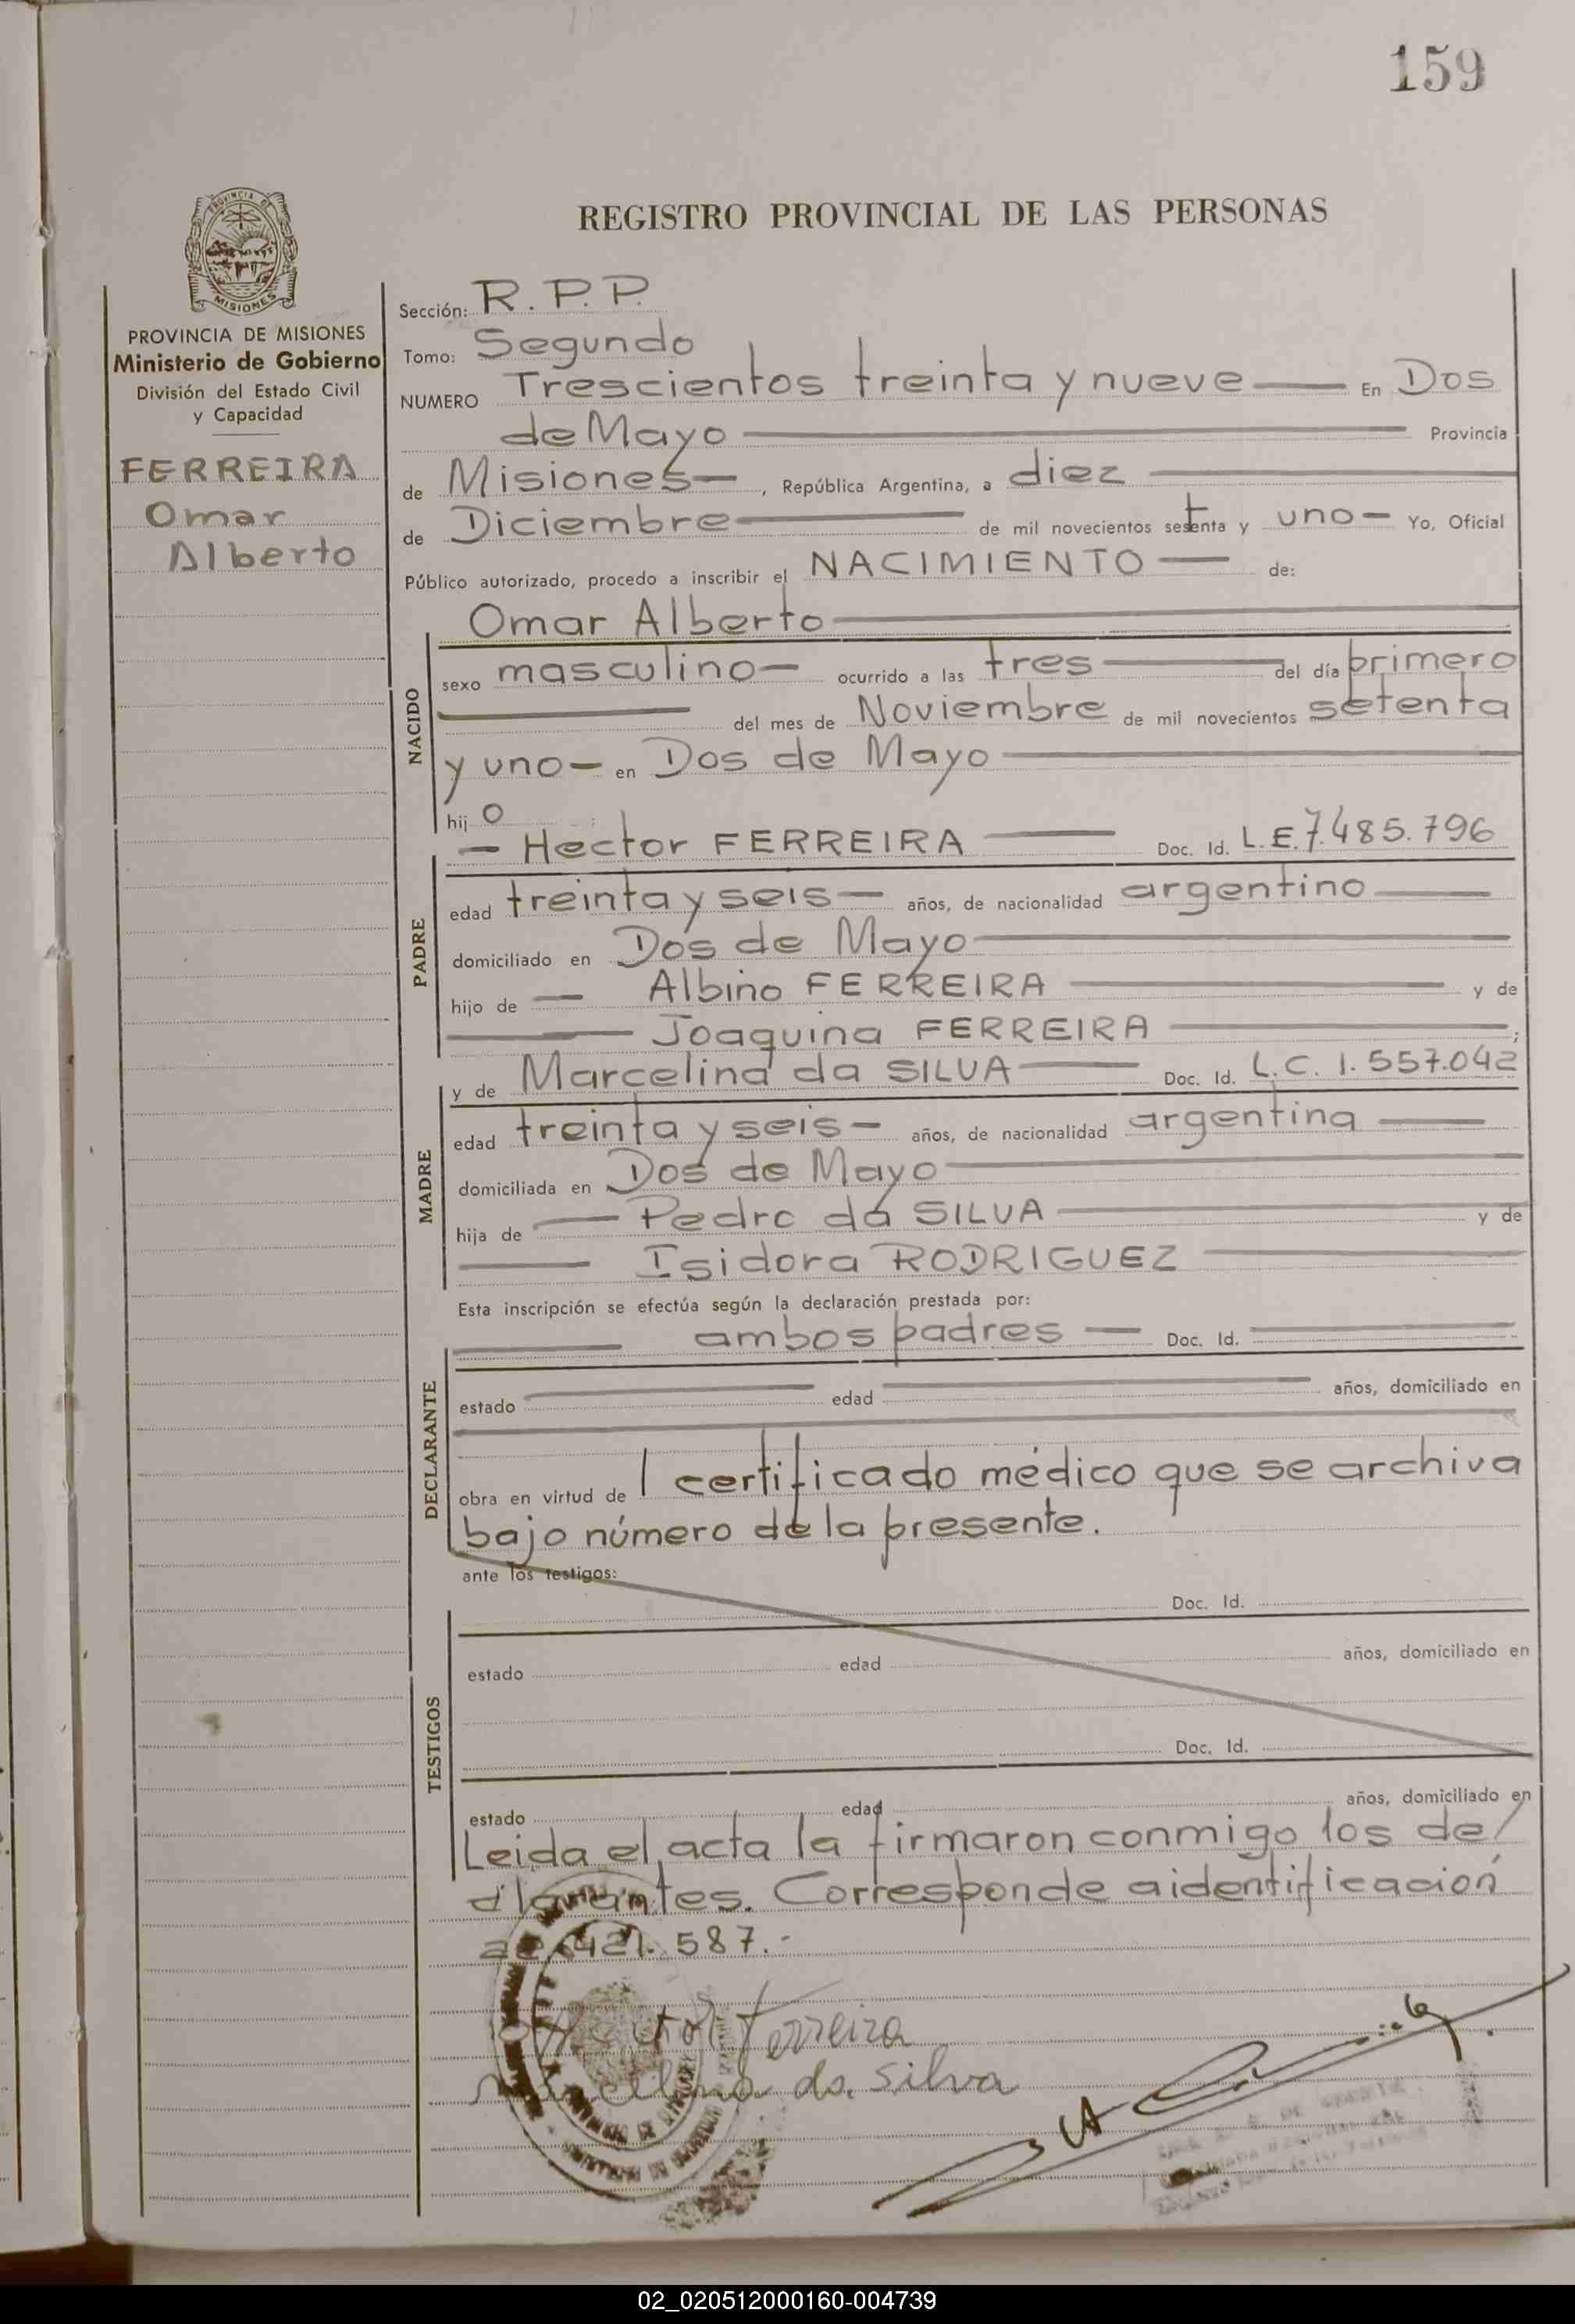 159
PROVINCIA DE
MISIONES
REGISTRO PROVINCIAL DE LAS PERSONAS
PROVINCIA DE MISIONES
Ministerio de Gobierno
División del Estado Civil
y Capacidad
FERREIRA
Omar
Alberto
Sección: R.P.P.
Tomo: Segundo
NUMERO Trescientos treinta y nueve — En Dos
de Mayo — Provincia
de Misiones —, República Argentina, a diez —
de Diciembre — de mil novecientos setenta y uno — Yo, Oficial
Público autorizado, procedo a inscribir el NACIMIENTO — de:
Omar Alberto —
NACIDO
sexo masculino — ocurrido a las tres — del día primero
— del mes de Noviembre de mil novecientos setenta
y uno — en Dos de Mayo —
hij o
— Hector FERREIRA — Doc. Id. L.E. 7.485.796
PADRE
edad treinta y seis — años, de nacionalidad argentino —
domiciliado en Dos de Mayo —
hijo de — Albino FERREIRA — y de
— Joaquina FERREIRA — ;
y de Marcelina da SILVA — Doc. Id. L.C. 1.557.042
MADRE
edad treinta y seis — años, de nacionalidad argentina —
domiciliada en Dos de Mayo —
hija de — Pedro da SILVA — y de
— Isidora RODRIGUEZ —
Esta inscripción se efectúa según la declaración prestada por:
— ambos padres — Doc. Id. —
DECLARANTE
estado — edad — años, domiciliado en
—
obra en virtud de 1 certificado médico que se archiva
bajo número de la presente.
ante los testigos:
Doc. Id.
TESTIGOS
estado edad años, domiciliado en
Doc. Id.
estado edad años, domiciliado en
Leida el acta la firmaron conmigo los de/
clarantes. Corresponde a identificación
587.-
Ferreira
da Silva
02_020512000160-004739